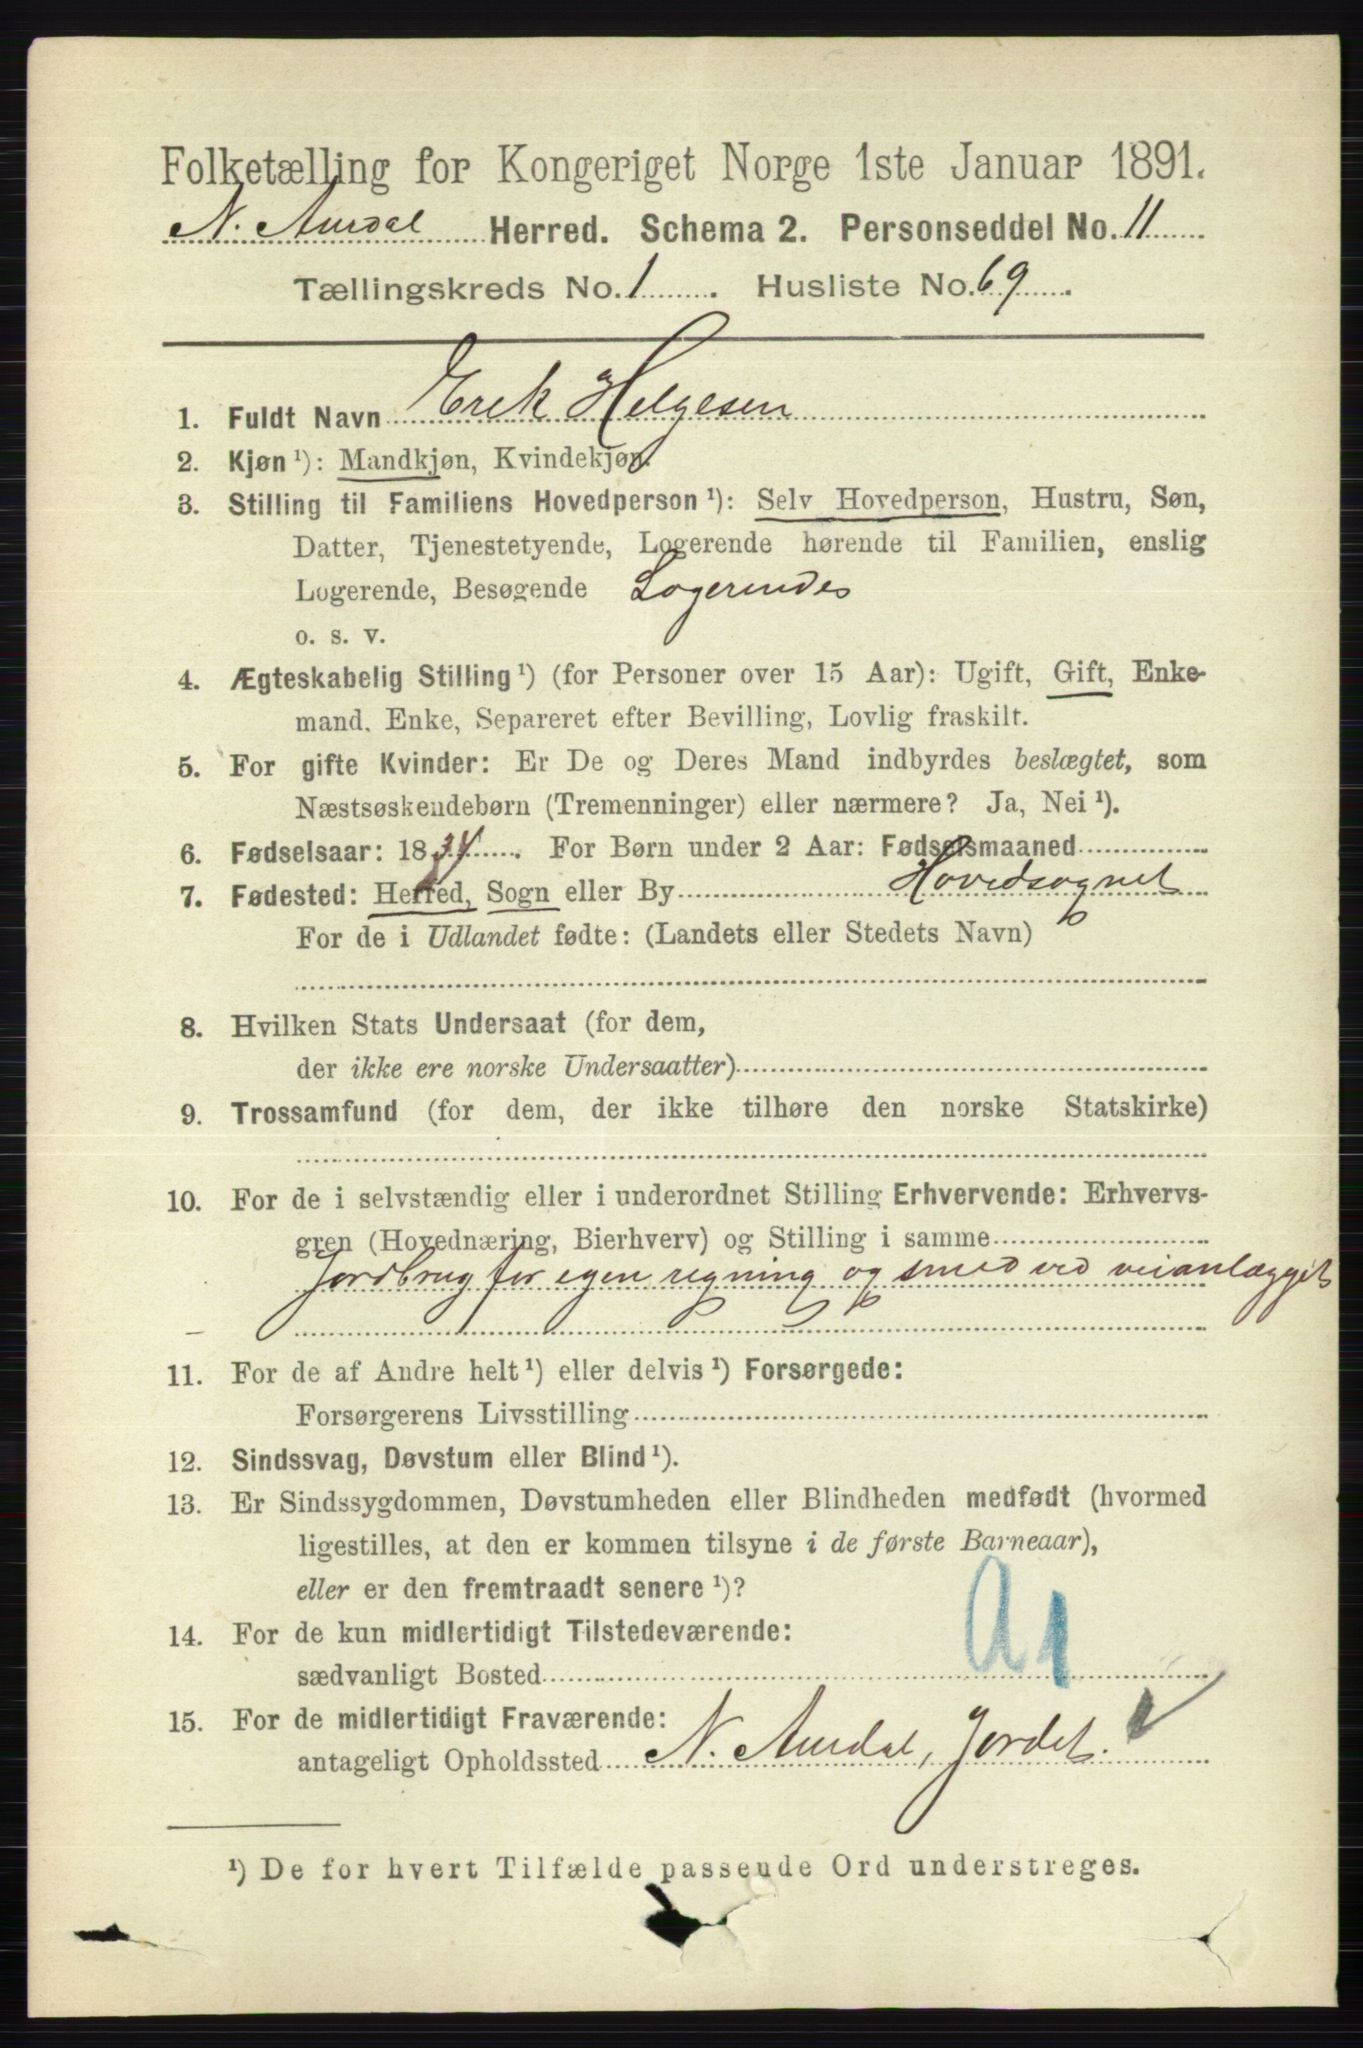 Folketælling for Kongeriget Norge 1ste Januar 1891.
N. Aurdal Herred. Schema 2. Personseddel No. 11
Tællingskreds No. 1. Husliste No. 69.
1. Fuldt Navn Erik Helgesen
2. Kjøn ¹): Mandkjøn, Kvindekjøn.
3. Stilling til Familiens Hovedperson ¹): Selv Hovedperson, Hustru, Søn,
Datter, Tjenestetyende, Logerende hørende til Familien, enslig
Logerende, Besøgende Logerendes
o. s. v.
4. Ægteskabelig Stilling ¹) (for Personer over 15 Aar): Ugift, Gift, Enke-
mand, Enke, Separeret efter Bevilling, Lovlig fraskilt.
5. For gifte Kvinder: Er De og Deres Mand indbyrdes beslægtet, som
Næstsøskendebørn (Tremenninger) eller nærmere? Ja, Nei ¹).
6. Fødselsaar: 1834. For Børn under 2 Aar: Fødselsmaaned
7. Fødested: Herred, Sogn eller By Hovedsognet
For de i Udlandet fødte: (Landets eller Stedets Navn)
8. Hvilken Stats Undersaat (for dem,
der ikke ere norske Undersaatter)
9. Trossamfund (for dem, der ikke tilhøre den norske Statskirke)
10. For de i selvstændig eller i underordnet Stilling Erhvervende: Erhvervs-
gren (Hovednæring, Bierhverv) og Stilling i samme
Jordbrug for egen regning og smed ved veianlægget
11. For de af Andre helt ¹) eller delvis ¹) Forsørgede:
Forsørgerens Livsstilling
12. Sindssvag, Døvstum eller Blind ¹).
13. Er Sindssygdommen, Døvstumheden eller Blindheden medfødt (hvormed
ligestilles, at den er kommen tilsyne i de første Barneaar),
eller er den fremtraadt senere ¹)?
14. For de kun midlertidigt Tilstedeværende:
sædvanligt Bosted
A1
15. For de midlertidigt Fraværende:
antageligt Opholdssted N. Aurdal, Jordet.
¹) De for hvert Tilfælde passende Ord understreges.